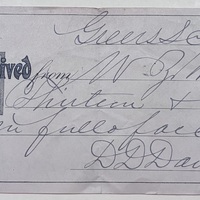 Greens
ived from W. B. M
Thirteen &
in full of acc
D D Da